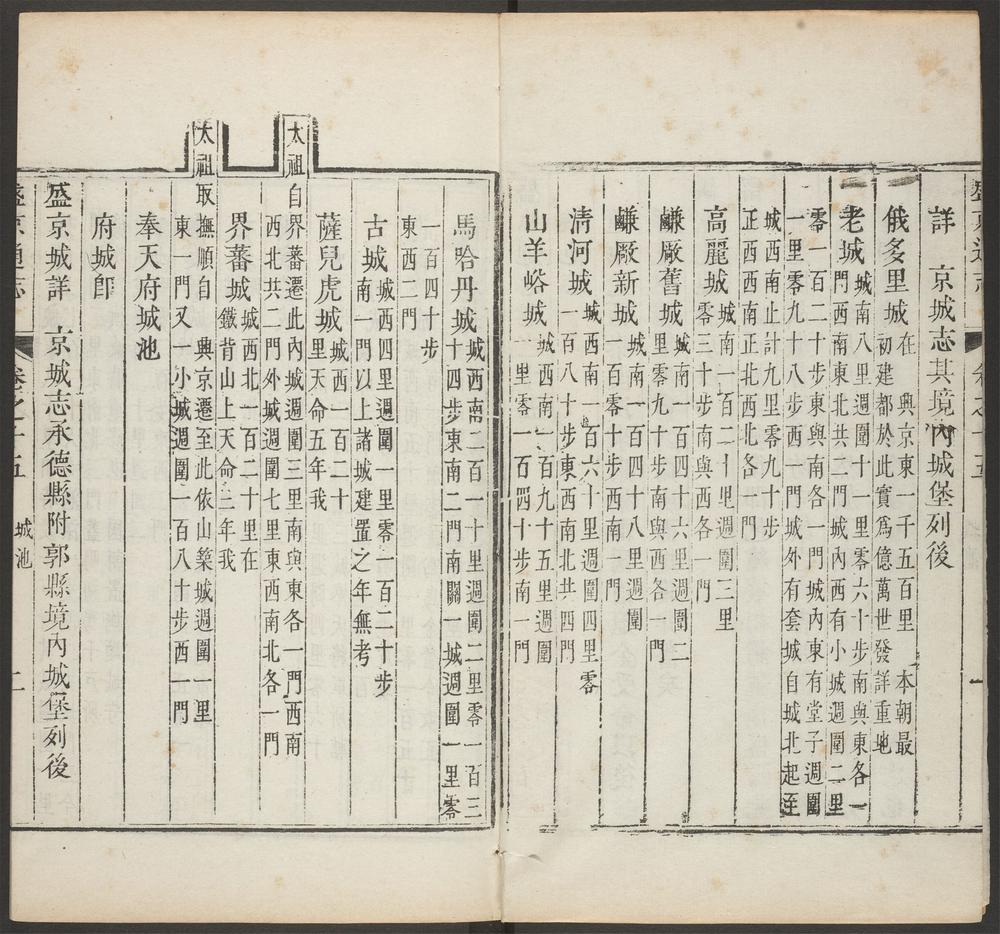 詳　京城志其境內城堡列後
俄多里城
在　興京東一千五百里　本朝最
初建都於此實爲億萬世發詳重地
老城
城南八里週圍十一里零六十步南與東各一
門西南東北共二門城內西有小城週圍二里
零一百二十步東與南各一門城內東有堂子週圍
一里零九十八步西一門城外有套城自城北起至
城西南止計九里零九十步
正西西南正南正北西北各一門
高麗城
城南一百二十里週圍三里
零三十步南與西各一門
鹻厰舊城
城南一百四十六里週圍二
里零九十步南與西各一門
鹻厰新城
城南一百四十八里週圍
一百零十步西南一門
淸河城
城西南一百六十里週圍四里零
一百八十步東西南北共四門
山羊峪城
城西南一百九十五里週圍
一里零一百四十步南一門
馬哈丹城
城西南二百一十里週圍二里零一百三
十四步東南二門南關一城週圍一里零
一百四十步
東西二門
古城
城西四里週圍一里零一百二十步
南一門以上諸城建置之年無考
薩兒虎城
城西一百二十
里天命五年我
太祖自界蕃遷此內城週圍三里南與東各一門西南
西北共二門外城週圍七里東西南北各一門
界蕃城
城西北一百二十里在
鐵背山上天命三年我
太祖取撫順自　興京遷至此依山築城週圍一里
東一門又一小城週圍一百八十步西一門
奉天府城池
府城卽
盛京城詳　京城志承德縣附郭縣境內城堡列後
盛京通志
卷之十五　城池　二